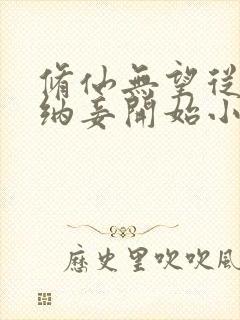 脩仙無望從
納妾開始小
歷史里吹吹風